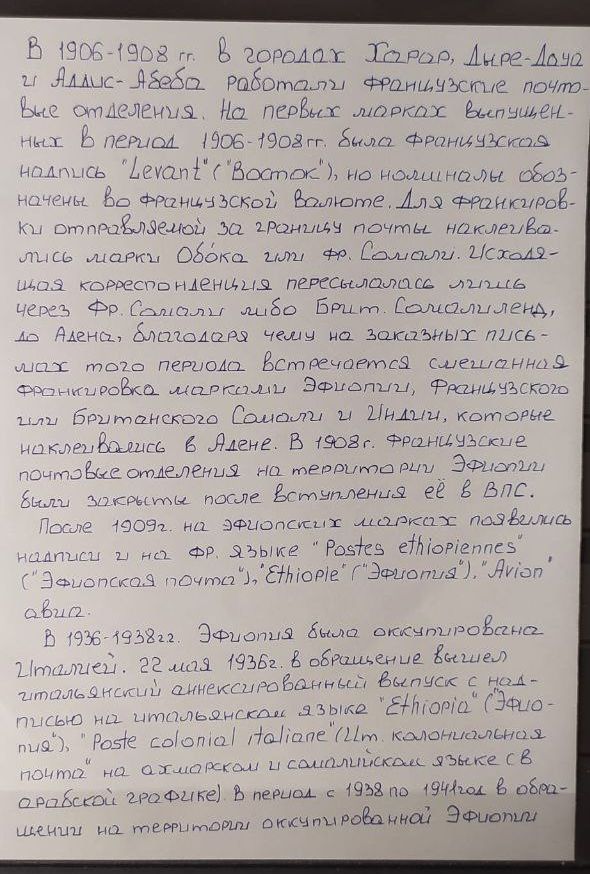 В 1906-1908 гг. в городах Харар, Дыре-Дауа
и Аддис-Абеба работали французские почто-
вые отделения. На первых марках выпущен-
ных в период 1906-1908гг. была французская
надпись "Levant" ("Восток"), но номиналы обоз-
начены во французской валюте. Для франкиров-
ки отправляемой за границу почты наклеива-
лись марки Обока или фр. Сомали. Исходя-
щая корреспонденция пересылалась лишь
через Фр. Сомали либо Брит. Сомалиленд,
до Адена, благодаря чему на заказных пись-
мах того периода встречается смешанная
франкировка марками Эфиопии, Французского
или Британского Сомали и Индии, которые
наклеивались в Адене. В 1908г. французские
почтовые отделения на территории Эфиопии
были закрыты после вступления её в ВПС.
После 1909г. на эфиопских марках появились
надписи и на фр. языке "Postes ethiopiennes"
("Эфиопская почта"), "Ethiopie" ("Эфиопия"), "Avion"
авиа.
В 1936-1938гг. Эфиопия была оккупирована
Италией. 22 мая 1936г. в обращение вышел
итальянский аннексированный выпуск с над-
писью на итальянском языке "Ethiopia" ("Эфио-
пия"), "Poste colonial italiane" (Ит. колониальная
почта" на ахмарском и сомалийском языке (в
арабской графике). В период с 1938 по 1941год в обра-
щении на территории оккупированной Эфиопии